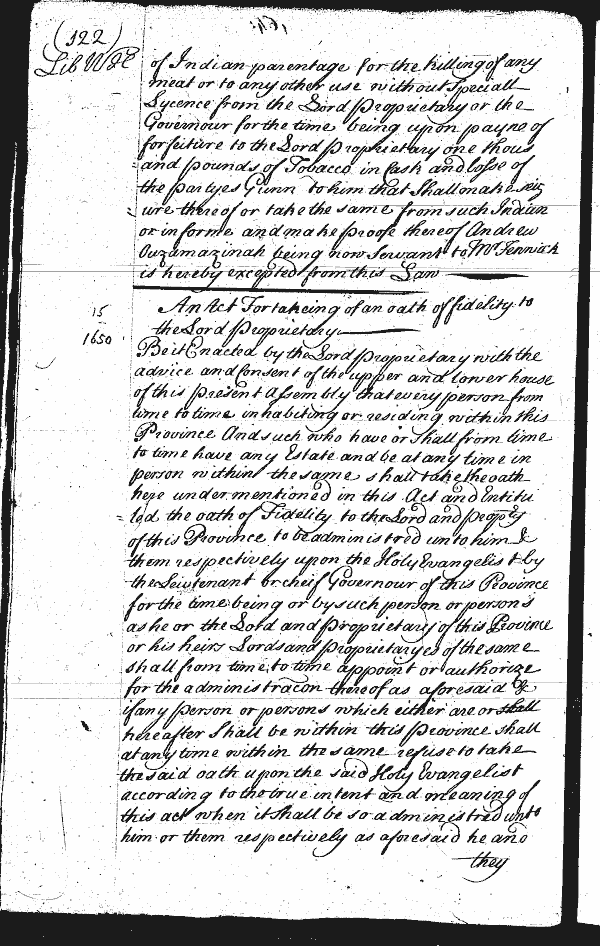 (122)
Lib W H
of Indian parentage for the killing of any
meat or to any other use without Speciall
Lycence from the Lord Proprietary or the
Governour for the time being upon payne of
forfeiture to the Lord Proprietary one thous
and pounds of Tobacco in Cask and losse of
the partyes Gunn to him that Shall make seiz
ure thereof or take the same from such Indian
or informe and make proofe thereof Andrew
Ouzamazinah being now Servant to Mr Fenwick
is hereby excepted from this Law
15
1650
An Act For takeing of an oath of fidelity to
the Lord Proprietary
Be it Enacted by the Lord Proprietary with the
advice and Consent of the upper and lower house
of this present Assembly that every person from
time to time inhabiting or residing within this
Province And such who have or shall from time
to time have any Estate and be at any time in
person within the same shall take the oath
here under mentioned in this Act and Entitu
led the oath of Fidelity to the Lord and Propry
of this Province to be administred unto him &
them respectively upon the Holy Evangelist by
the Leiutenant or cheif Governour of this Province
for the time being or by such person or persons
as he or the Lord and Proprietary of this Province
or his heirs Lords and Proprietaryes of the same
shall from time to time appoint or authorize
for the administracon thereof as aforesaid &
if any person or persons which either are or shall
hereafter Shall be within this Province shall
at any time within the same refuse to take
the said oath upon the said Holy Evangelist
according to the true intent and meaning of
this act when it shall be so administred unto
him or them respectively as aforesaid he and
they